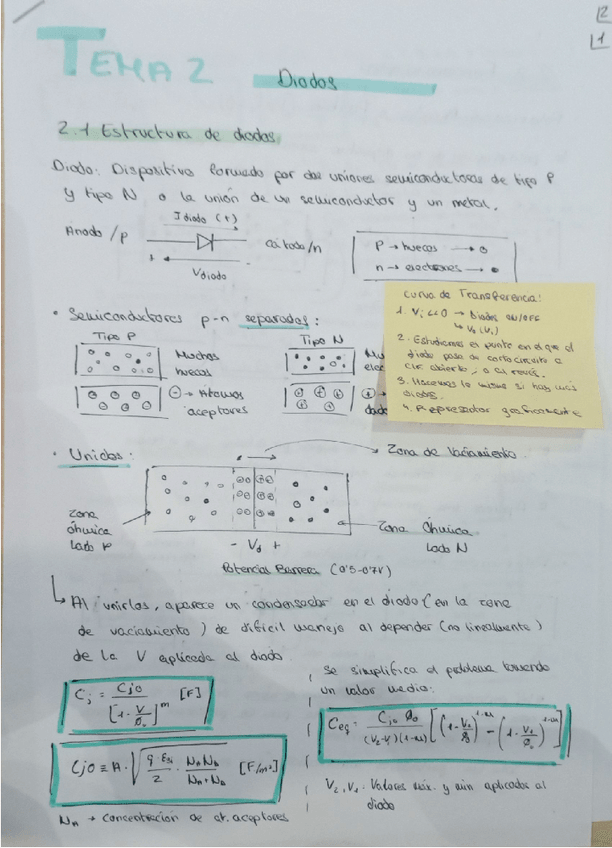 2
1
TEMA 2
Diodos
2.1 Estructura de diodos
Diodo: Dispositivo formado por dos uniones semiconductoras de tipo P
y tipo N o la unión de un semiconductor y un metal.
I diodo (+)
Ánodo/P
cátodo/n
+ -
V diodo
P → huecos → o
n → electrones → •
Curva de Transferencia:
1. Vi <<0 → Diodos ON/OFF
↳ Vo (Vi)
2. Estudiamos el punto en el que el
diodo pasa de cortocircuito a
cir. abierto, o al revés.
3. Hacemos lo mismo si hay más
diodos.
4. Representar graficamente
• Semiconductores p-n separados:
Tipo P
Tipo N
Muchos
huecos
Mu
elec
⊖ → Átomos
aceptores
⊕ →
dado
• Unidos:
Zona de Vaciamiento
Zona
Óhmica
Lado P
Zona Óhmica
Lado N
- Vd +
Potencial Barrera (0'5-0'7V)
↳ Al unirlos, aparece un condensador en el diodo (en la zona
de vaciamiento) de difícil manejo al depender (no linealmente)
de la V aplicada al diodo.
Cj = Cjo / [1 - V/Øo]^m [F]
Cjo ≡ A · √(q · εSi / 2 · NA ND / NA + ND) [F/m²]
NA → Concentracion de at. aceptores
Se simplifica el problema tomando
un valor medio:
Ceq = Cjo Øo / (V2-V1)(1-m) [(1 - V2/Øo)^1-m - (1 - V1/Øo)^1-m]
V2, V1: Valores máx. y min aplicados al
diodo